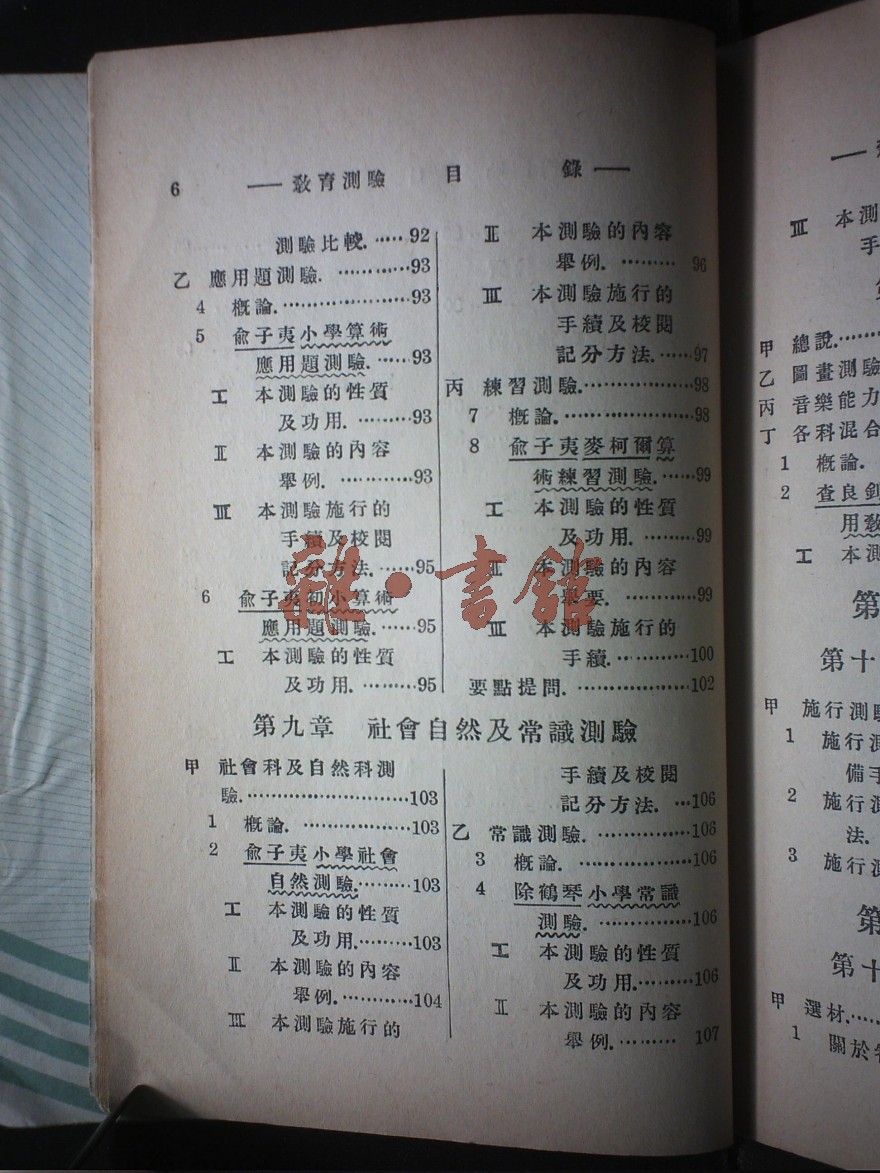 6 —— 教育測驗 目 錄 ——
測驗比較. ······ 92
乙 應用題測驗. ············93
4 概論. ·····················93
5 俞子夷小學算術
應用題測驗. ······93
I 本測驗的性質
及功用. ·········93
II 本測驗的內容
舉例. ············93
III 本測驗施行的
手續及校閱
記分方法. ······95
6 俞子夷初小算術
應用題測驗. ······95
I 本測驗的性質
及功用. ·········95
II 本測驗的內容
舉例. ········· 96
III 本測驗施行的
手續及校閱
記分方法. ······97
丙 練習測驗. ··················98
7 概論. ·····················98
8 俞子夷麥柯爾算
術練習測驗. ······99
I 本測驗的性質
及功用. ·········99
II 本測驗的內容
舉要. ············99
III 本測驗施行的
手續. ············100
要點提問. ··················102
第九章 社會自然及常識測驗
甲 社會科及自然科測
驗. ························103
1 概論. ··················103
2 俞子夷小學社會
自然測驗. ·········103
I 本測驗的性質
及功用. ·········103
II 本測驗的內容
舉例. ············104
III 本測驗施行的
手續及校閱
記分方法. ···106
乙 常識測驗. ···············106
3 概論. ··················106
4 除鶴琴小學常識
測驗. ···············106
I 本測驗的性質
及功用. ·········106
II 本測驗的內容
舉例. ········· 107
雜·書館
III 本測
手
第
甲 總說. ·········
乙 圖畫測驗
丙 音樂能力
丁 各科混合
1 概論.
2 查良釗
用教
I 本測
第
第十
甲 施行測驗
1 施行測
備手
2 施行測
法.
3 施行測
第
第十
甲 選材. ······
1 關於